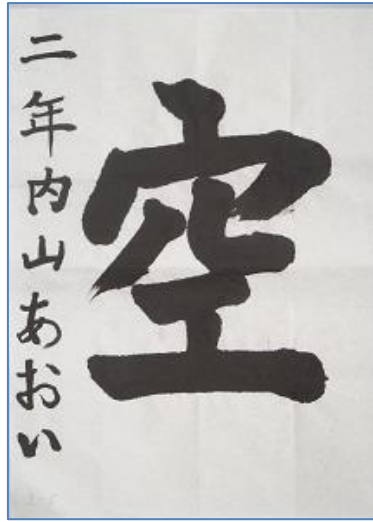 空
二年内山あおい